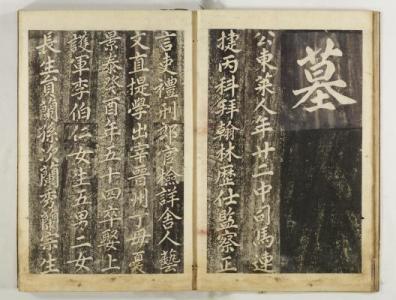 墓
公東萊人年廿二中司馬連
捷丙科拜翰林歷仕監察正
言吏禮刑郎官檢詳舍人藝
文直提學出宰晉州丁母憂
景泰癸酉年五十四卒娶上
護軍李伯仁女生五男二女
長生員蘭孫次蘭秀蘭宗生